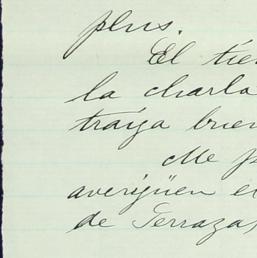 plus.
El tie
la charla
traiga buen
Me p
averigüen e
de Terrazas